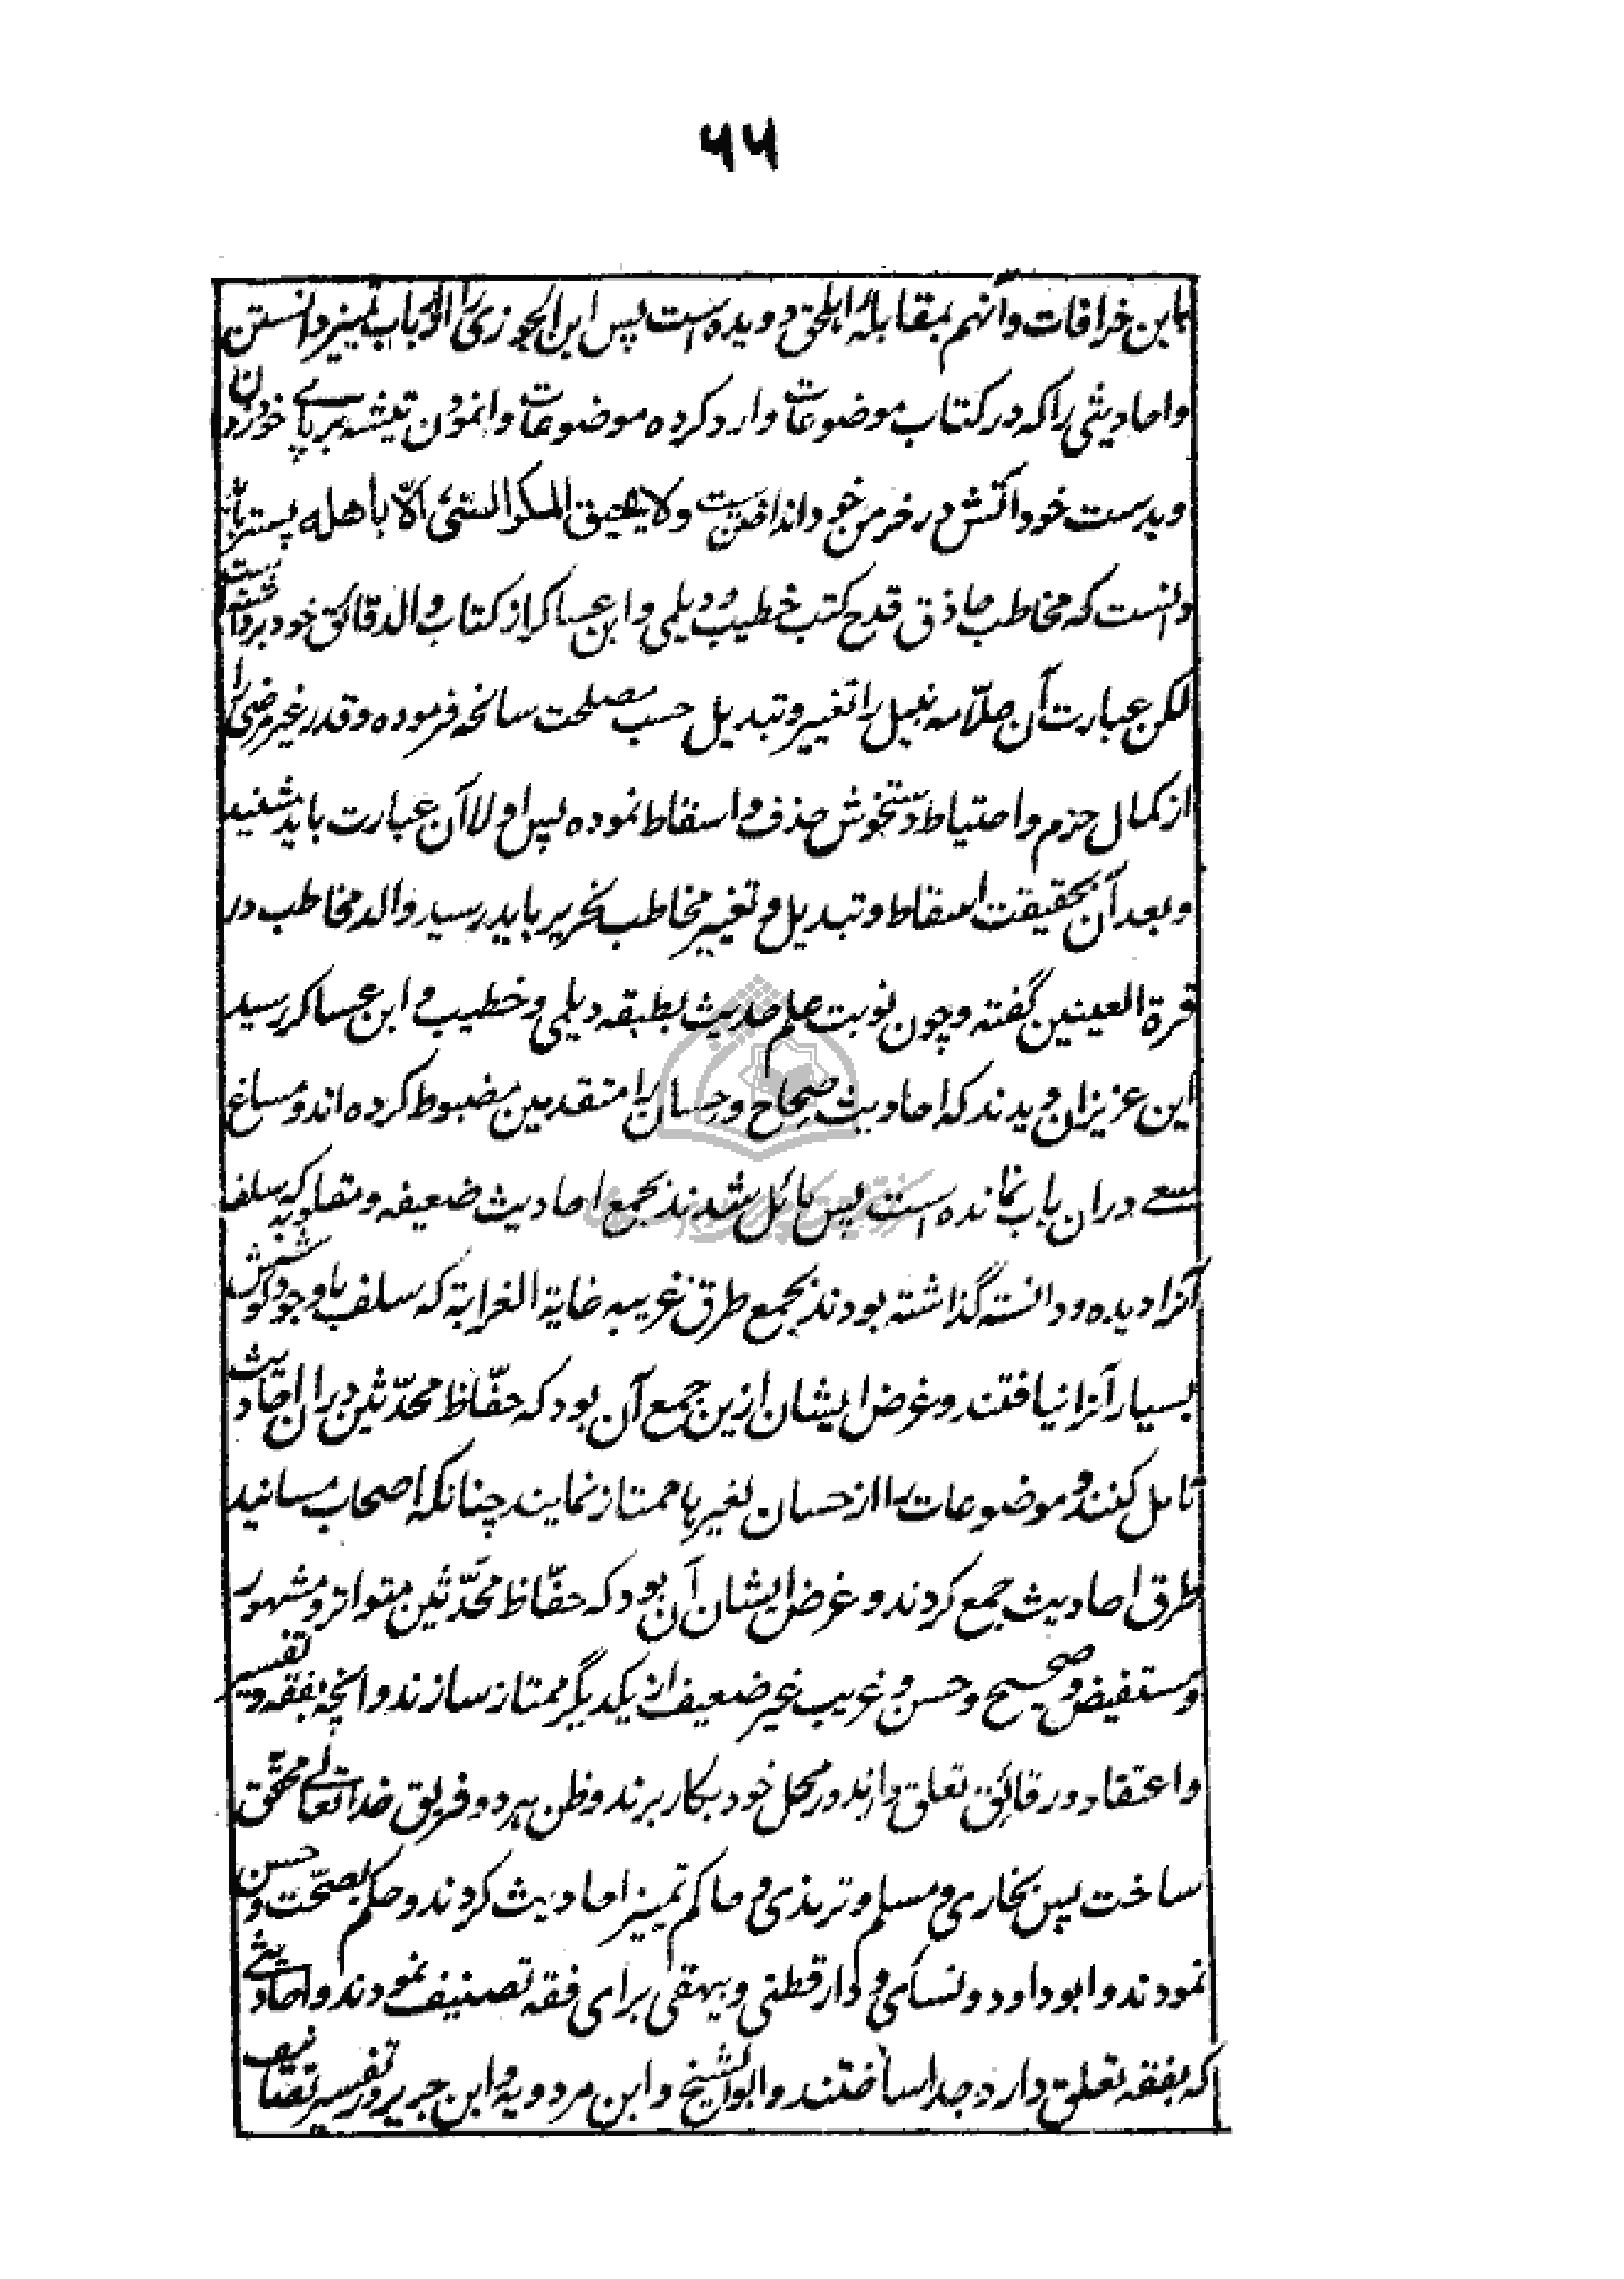 ۵۵
باین خرافات وآنهم بمقابلهٔ اهلحق دویده است پس ابن الجوزی را از ارباب تمیز دانستن
واحادیثی را که در کتاب موضوعات وارد کرده موضوعات وانمودن تیشه بر پاے خود زدن
وبدست خود آتش در خرمن خود انداختن ست ولا یحیق المکر السّیئ الّا باهله پستر باید
دانست که مخاطب حاذق قدح کتب خطیب ودیلمی وابن عساکر از کتاب والد قائق خود برداشته ست
لکن عبارت آن علّامه نبیل را تغییر وتبدیل حسب مصلحت سانحه فرموده وقدر غیر مرضی را
از کمال حزم واحتیاط دستخوش حذف واسقاط نموده پس اولا آن عبارت باید شنید
وبعد آن بحقیقت اسقاط وتبدیل وتغییر مخاطب نحریر باید رسید والد مخاطب در
قرة العینین گفته وچون نوبت علم حدیث بطبقه دیلمی وخطیب وابن عساکر رسید
این عزیزان دیدند که احادیث صحاح وحسان را متقدمین مضبوط کرده اند ومساغ
سعے دران باب نمانده است پس مائل شدند بجمع احادیث ضعیفه ومقلوبه که سلف
آنرا دیده ودانسته گذاشته بودند بجمع طرق غریبه غایة الغرابة که سلف با وجود کوشش
بسیار آنرا نیافتند وغرض ایشان ازین جمع آن بود که حفّاظ محدّثین دران احادیث
تامل کنند وموضوعات را از حسان لغیرها ممتاز نمایند چنانکه اصحاب مسانید
طرق احادیث جمع کردند وغرض ایشان آن بود که حفّاظ محدّثین متواتر ومشهور
ومستفیض وصحیح وحسن وغریب غیر ضعیف از یکدیگر ممتاز سازند وانچه بفقه وتفسیر
واعتقاد ورقائق تعلق دارند در محل خود بکار برند وظن هر دو فریق خداے تعالے محقق
ساخت پس بخاری ومسلم وترمذی وحاکم تمییز احادیث کردند وحکم بصحّت وحسن
نمودند وابو داود ونسائی ودارقطنی وبیهقی برای فقه تصنیف نمودند واحادیثے
که بفقه تعلق دارد جدا ساختند وابو الشیخ وابن مردویه وابن جریر در تفسیر تصانیف